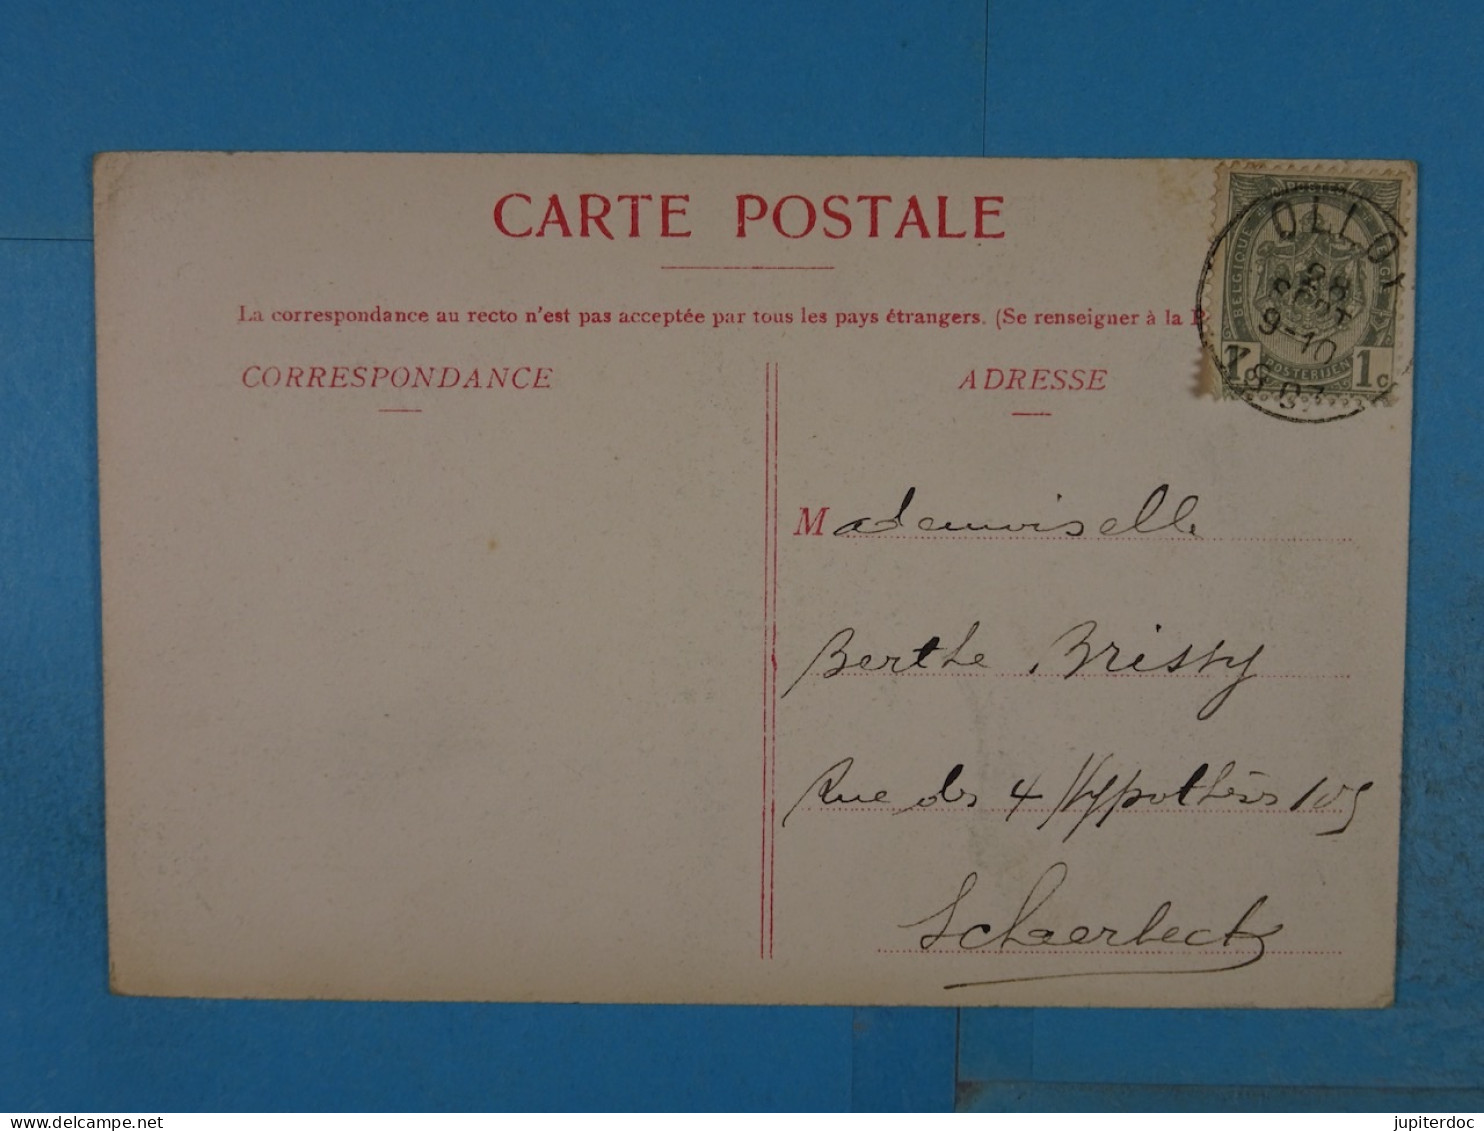 CARTE POSTALE
La correspondance au recto n'est pas acceptée par tous les pays étrangers. (Se renseigner à la P
CORRESPONDANCE
ADRESSE
OLLOY
28
9-10
07
BELGIQUE
POSTERIJEN
1c 1c
Mademoiselle
Berthe Brissy
Rue des 4 Hypothèses 105
Schaerbeck
jupiterdoc